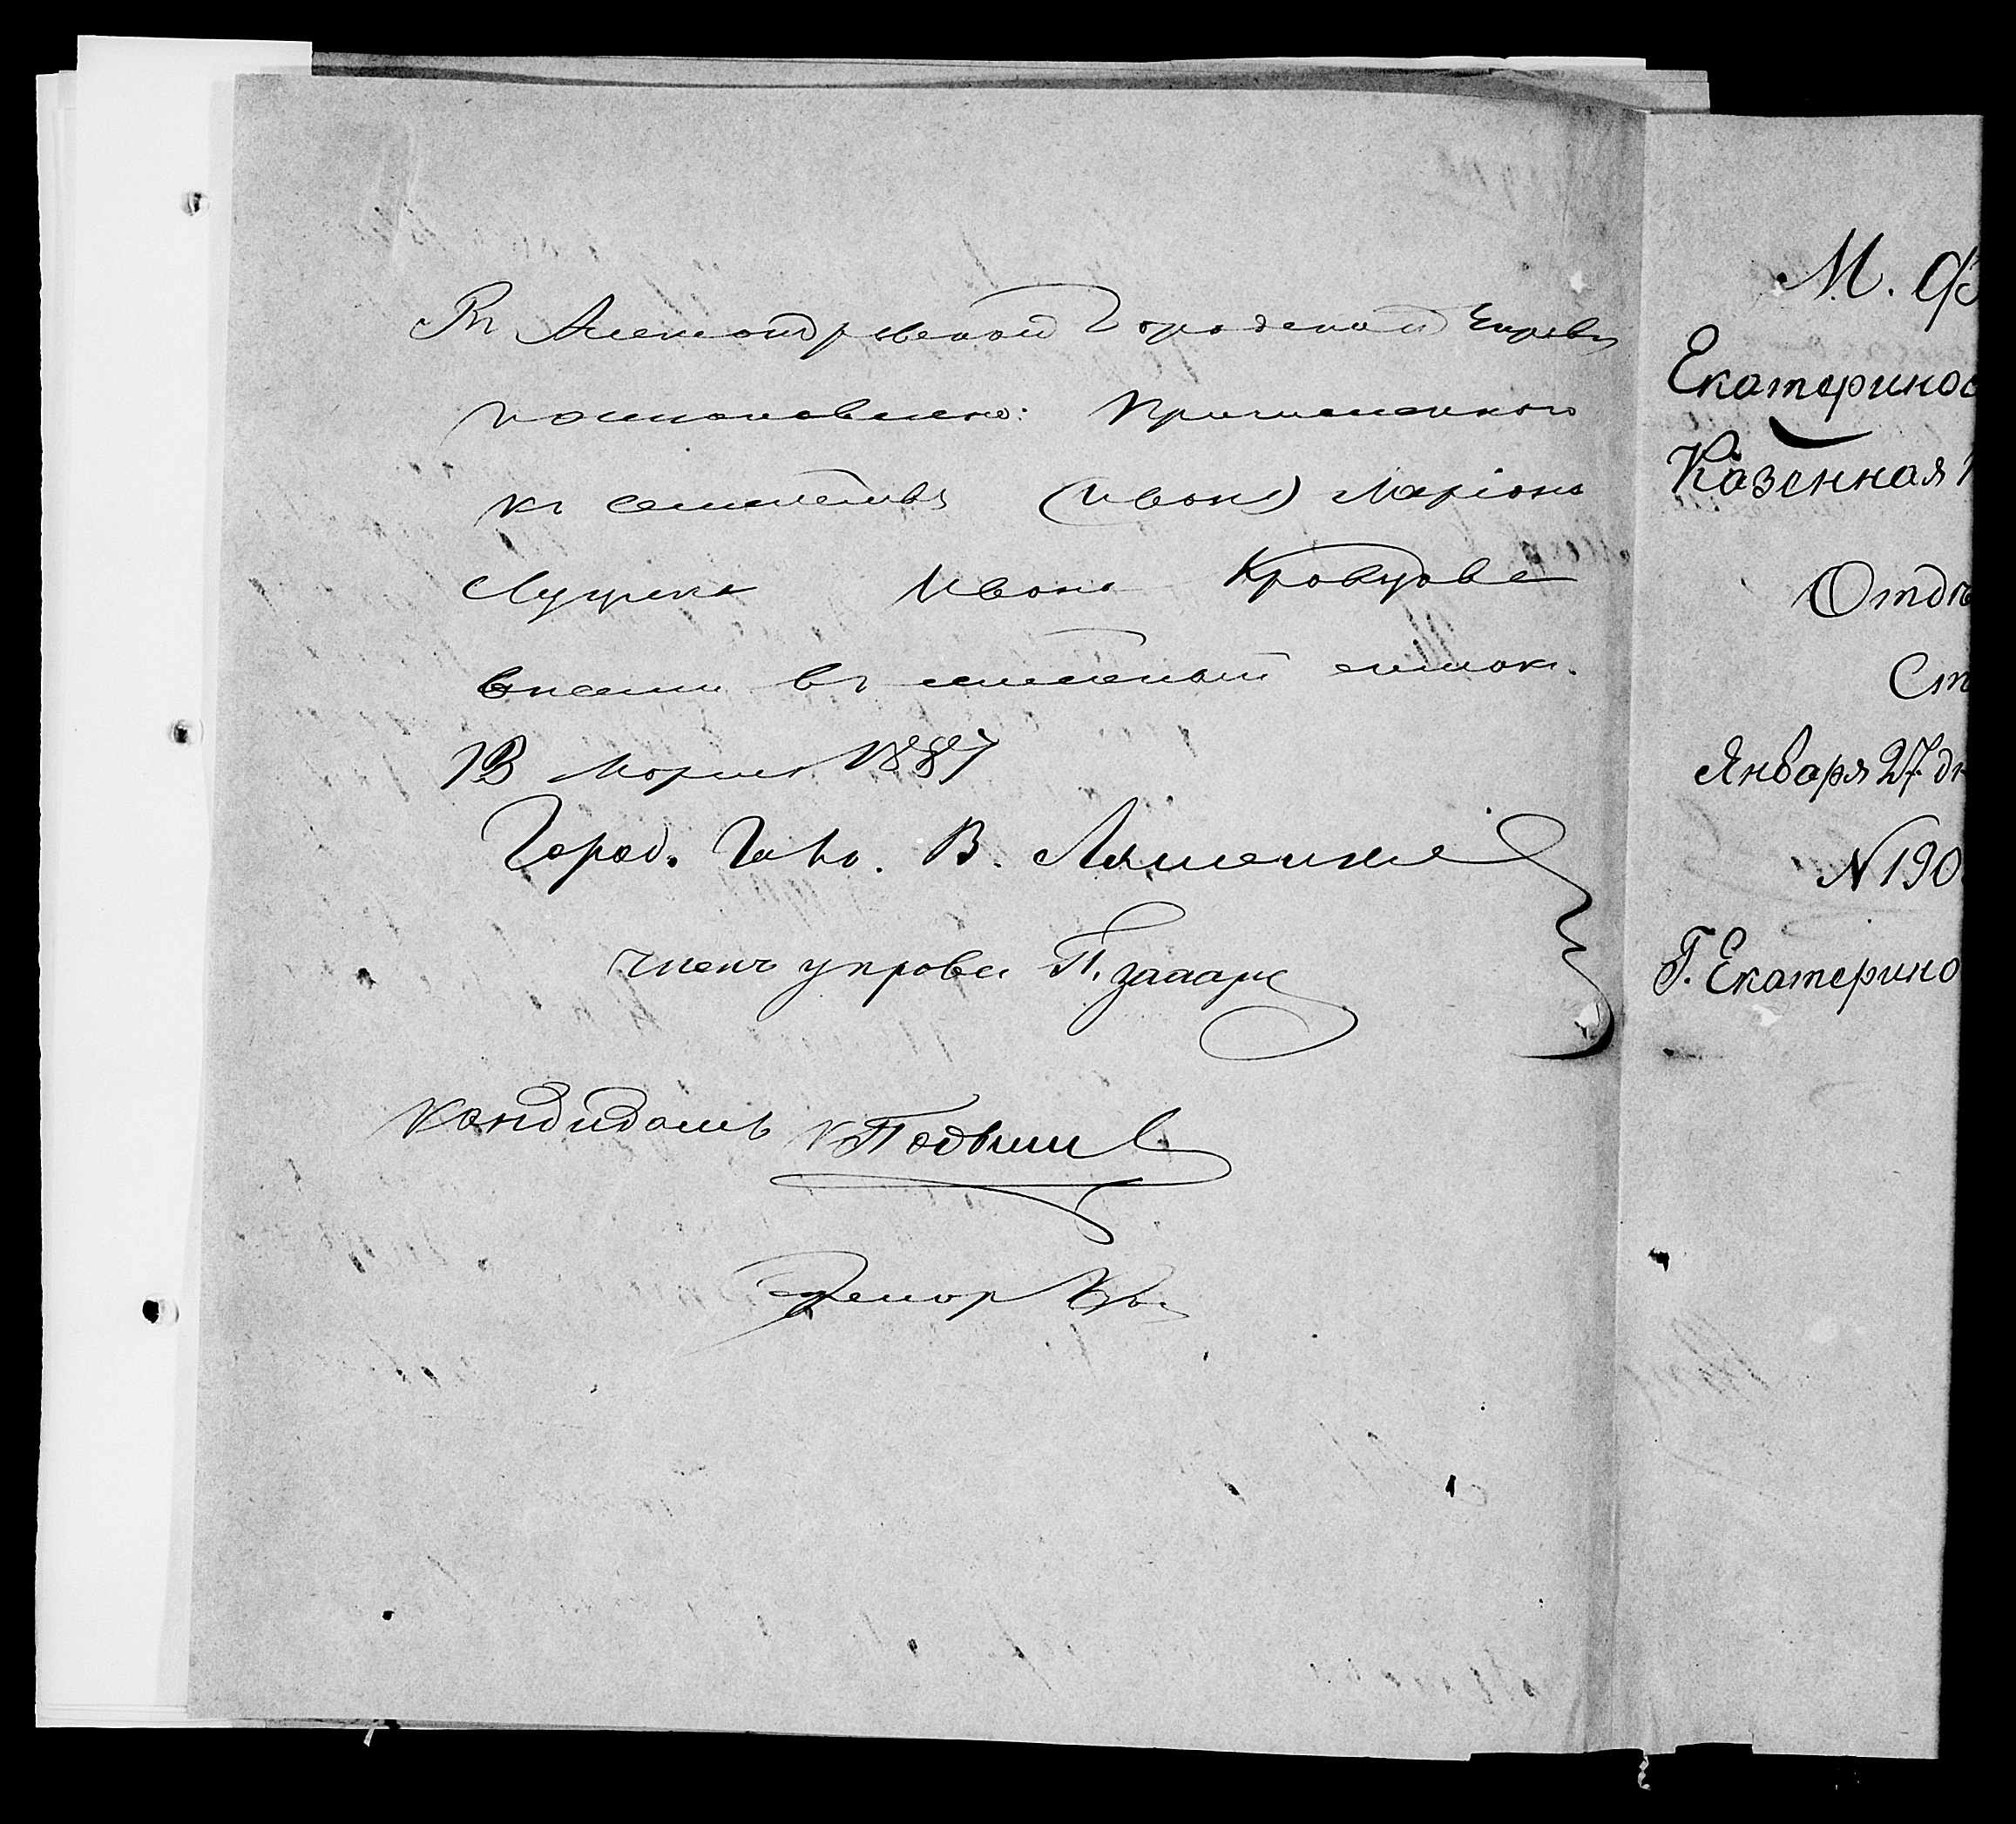 Въ Александровской Городской Управѣ
постановлено: Причисленного
къ семейству (Ивана) Маріона
Луценка Ивана Кравцова
внести въ семейный списокъ.
13 Марта 1887
Город. Голо. В. Ляшенко
членъ управы П.
Кандидатъ
М. Ф
Екатеринос
Казенная
Отдѣ
Ст
Января 27 дн
N 190
Г. Екатерино